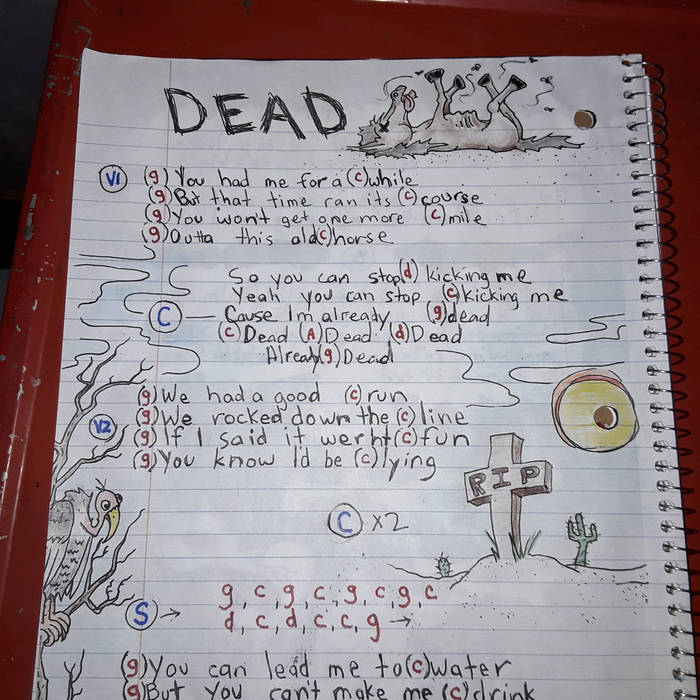 DEAD
V1 (g) You had me for a (c) while
(g) But that time ran its (c) course
(g) You won't get one more (c) mile
(g) Outta this old (c) horse
So you can stop (d) kicking me
Yeah you can stop (c) kicking me
C — Cause I'm already (g) dead
(c) Dead (A) Dead (d) Dead
Already (g) Dead
(g) We had a good (c) run
V2 (g) We rocked down the (c) line
(g) If I said it wernt (c) fun
(g) You know I'd be (c) lying
RIP
C x2
g, c, g, c, g, c, g, c
S → d, c, d, c, c, g →
(g) You can lead me to (c) water
(g) But you can't make me (c) drink